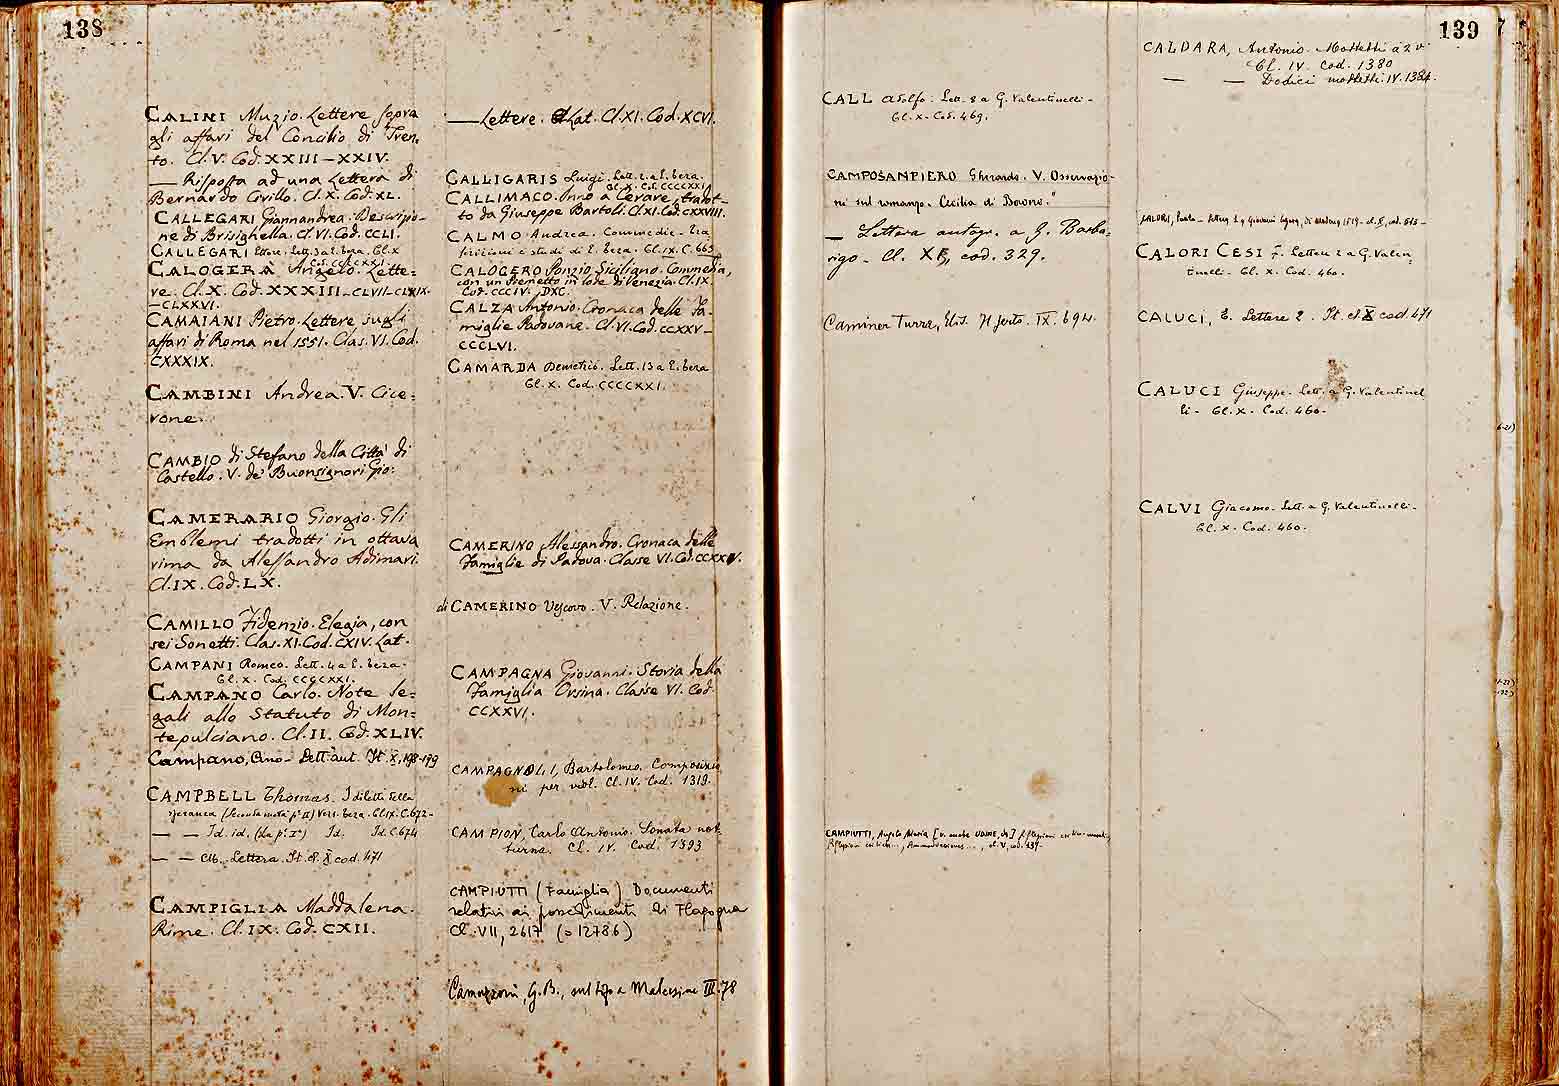 138
CALINI Muzio. Lettere sopra
gli affari del Concilio di Tren=
to. Cl. V. Cod. XXIII–XXIV.
— Risposta ad una Lettera di
Bernardo Cirillo. Cl. X. Cod. XL.
CALLEGARI Giannandrea. Descrizio=
ne di Brisighella. Cl. VI. Cod. CCLI.
CALLEGARI Ettore. Lett. 3 a E. Teza. Cl. X
Cod. CCCCXXI.
CALOGERÀ Angelo. Lette=
re. Cl. X. Cod. XXXIII–CLVII–CLXIX–
–CLXXVI.
CAMAIANI Pietro. Lettere sugli
affari di Roma nel 1551. Clas. VI. Cod.
CXXXIX.
CAMBINI Andrea. V. Cice=
rone.
CAMBIO di Stefano della Città di
Castello. V. de' Buonsignori Gio:
CAMERARIO Giorgio. Gli
Emblemi tradotti in ottava
rima da Alessandro Adimari.
Cl. IX. Cod. LX.
CAMILLO Fidenzio. Elegia, con
sei Sonetti. Clas. XI. Cod. CXIV. Lat.
CAMPANI Romeo. Lett. 4 a E. Teza.
Cl. X. Cod. CCCCXXI.
CAMPANO Carlo. Note le=
gali allo Statuto di Mon=
tepulciano. Cl. II. Cod. XLIV.
Campano, Cino – Lett. aut. It. X, 198-199
CAMPBELL Thomas. I diletti della
speranza (Seconda metà pe. II) vers. Teza. Cl. IX. C. 672–
— — Id. id. (da pe. Ia) Id. Id. C. 674
— — Lettera. It. cl. X cod. 471
CAMPIGLIA Maddalena.
Rime. Cl. IX. Cod. CXII.
— Lettere. Lat. Cl. XI. Cod. XCVI.
CALLIGARIS Luigi. Lett. 2 a E. Teza.
Cl. X. Cod. CCCCXXI
CALLIMACO. Inno a Cerere, tradot–
to da Giuseppe Bartoli. Cl. XI. Cod. CXXVIII.
CALMO Andrea. Commedie – Tra
scrizioni e studi di E. Teza. Cl. IX. C. 665
CALOGERO Ponzio, Siciliano. Commedia,
con un Poemetto in lode di Venezia. Cl. IX.
Cod. CCCIV. DXC.
CALZA Antonio. Cronaca delle Fa–
miglie Padovane. Cl. VI. Cod. CCXXV–
CCCLVI.
CAMARDA Demetrio. Lett. 13 a E. Teza
Cl. X. Cod. CCCCXXI.
CAMERINO Alessandro. Cronaca delle
Famiglie di Padova. Classe VI. Cod. CCXXV.
di CAMERINO Vescovo. V. Relazione.
CAMPAGNA Giovanni. Storia della
Famiglia Orsina. Classe VI. Cod.
CCXXVI.
CAMPAGNOLI, Bartolomeo. Composizio
ni per viol. Cl. IV. Cod. 1319.
CAMPION, Carlo Antonio. Sonata not–
turna. Cl. IV. Cod. 1393
CAMPIUTTI (Famiglia) Documenti
relativi ai possedimenti di Flagogna
Cl. VII, 2617 (= 12786)
G. B., Malcesine III. 78
139
CALL Adolfo. Lett. 8 a G. Valentinelli –
Cl. X. Cod. 469.
CAMPOSANPIERO Gherardo. V. Osservazio–
ni sul romanzo "Cecilia di Baone."
— Lettera autogr. a G. Barba–
rigo – Cl. X, cod. 329.
Caminer Turra, Elis. IX. 694.
CAMPIUTTI, Angelo Maria [v. anche UDINE, da]
CALDARA, Antonio. Mottetti a 2 v.
Cl. IV. Cod. 1380
— — Dodici mottetti. IV. 1384.
CALORI CESI F. Lettere 2 a G. Valen–
tinelli – Cl. X. Cod. 460.
CALUCI, E. Lettere 2. It. cl. X cod. 471
CALUCI Giuseppe. Lett. a G. Valentinel
li – Cl. X. Cod. 460.
CALVI Giacomo. Lett. a G. Valentinelli –
Cl. X. Cod. 460.